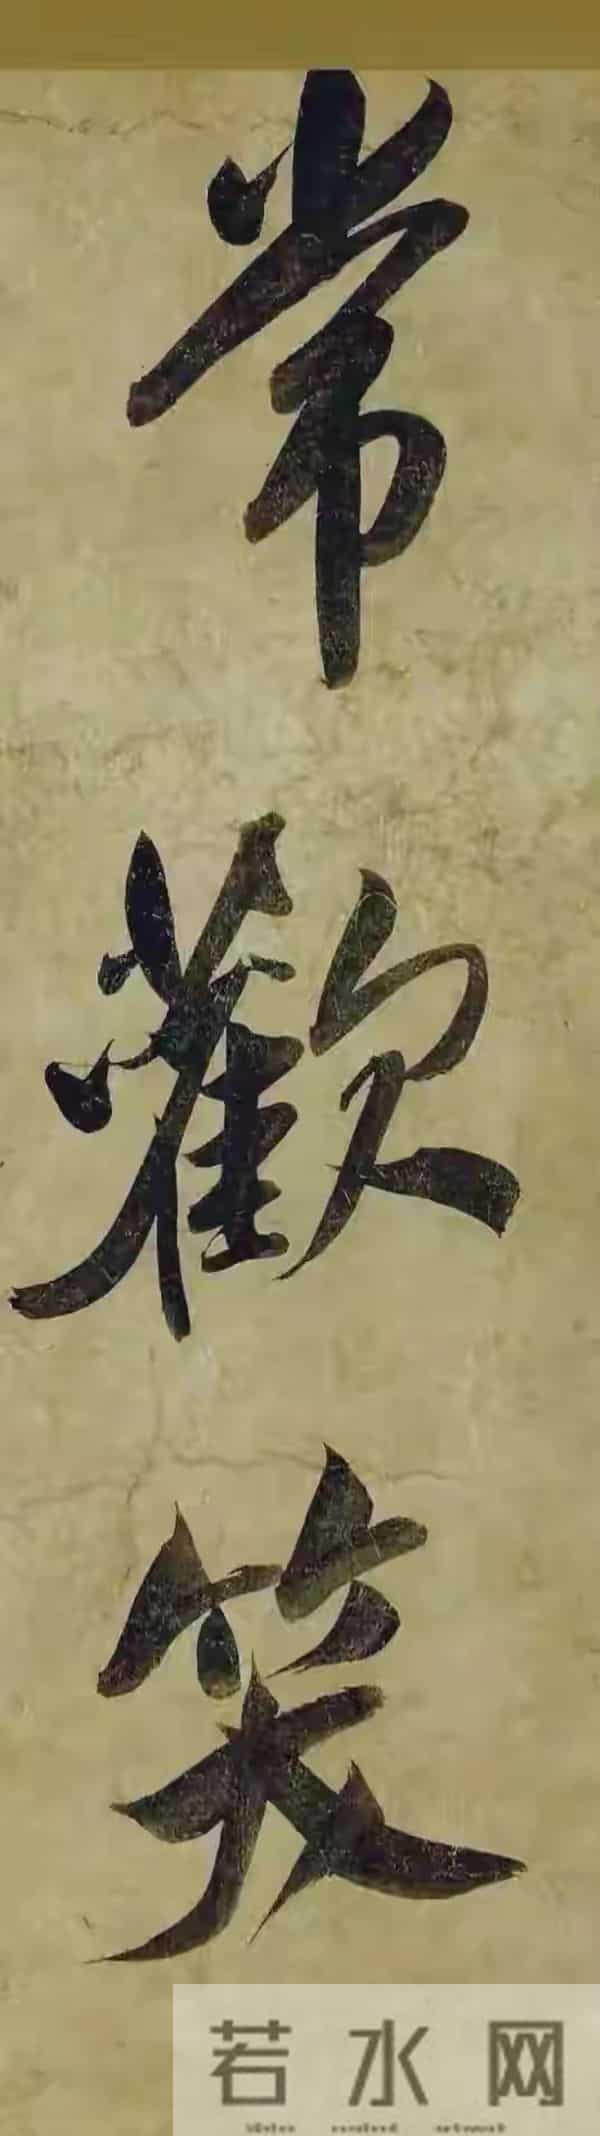 常歡笑
若水网